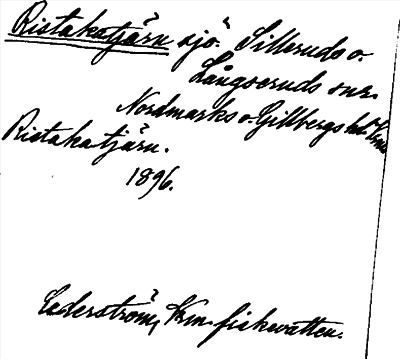 Ristakatjärn sjö. Silleruds o.
Långseruds snr.
Nordmarks o. Gillbergs hd Vrml
Ristakatjärn.
1896.
Cederström, Vrm. fiskevatten.